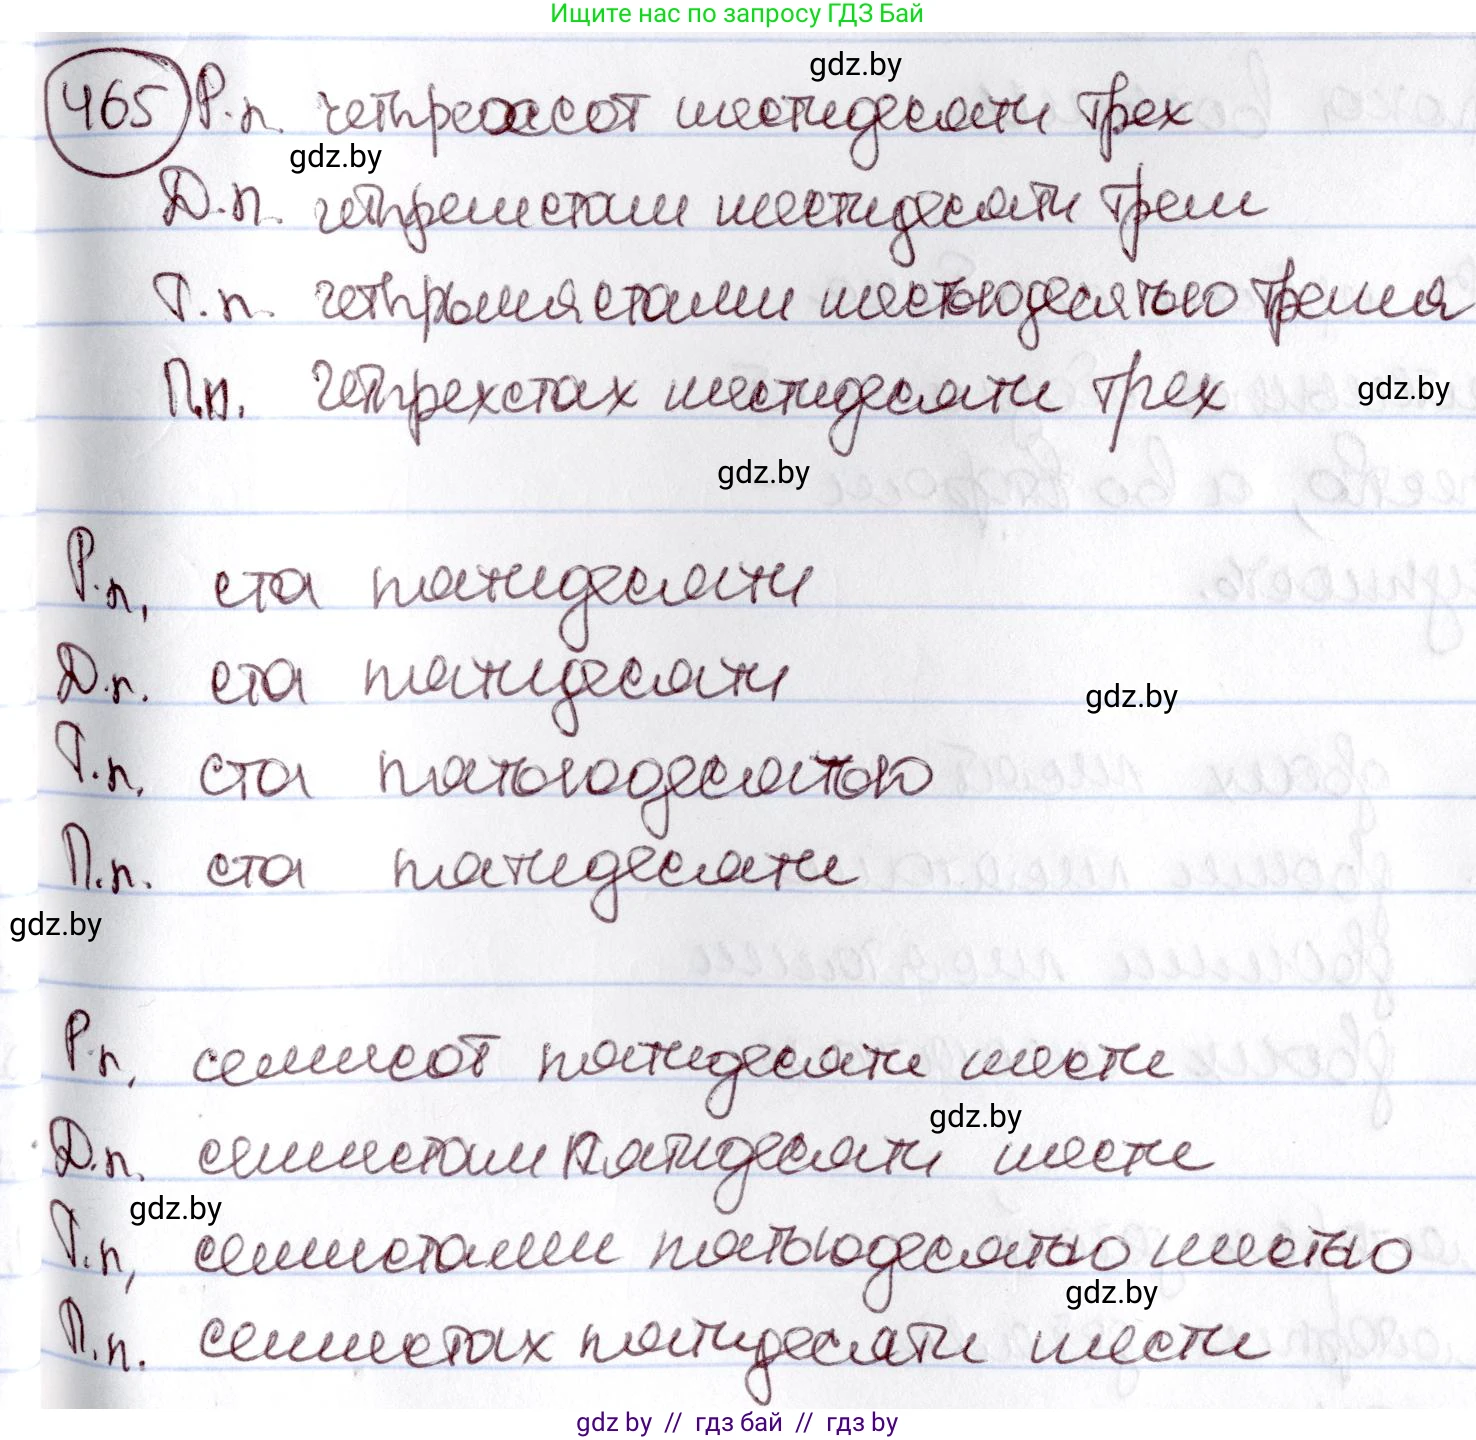 Ищите нас по запросу ГДЗ Бай
gdz.by
465 Р.п. четырехсот шестидесяти трех
gdz.by
Д.п. четыремстам шестидесяти трем
Т.п. четырьмястами шестьюдесятью тремя
П.п. четырехстах шестидесяти трех
gdz.by
gdz.by
Р.п. ста пятидесяти
Д.п. ста пятидесяти
gdz.by
Т.п. ста пятьюдесятью
П.п. ста пятидесяти
gdz.by
Р.п. семисот пятидесяти шести
gdz.by
Д.п. семистам пятидесяти шести
gdz.by
Т.п. семистами пятьюдесятью шестью
gdz.by
П.п. семистах пятидесяти шести
gdz by // гдз бай // гдз by